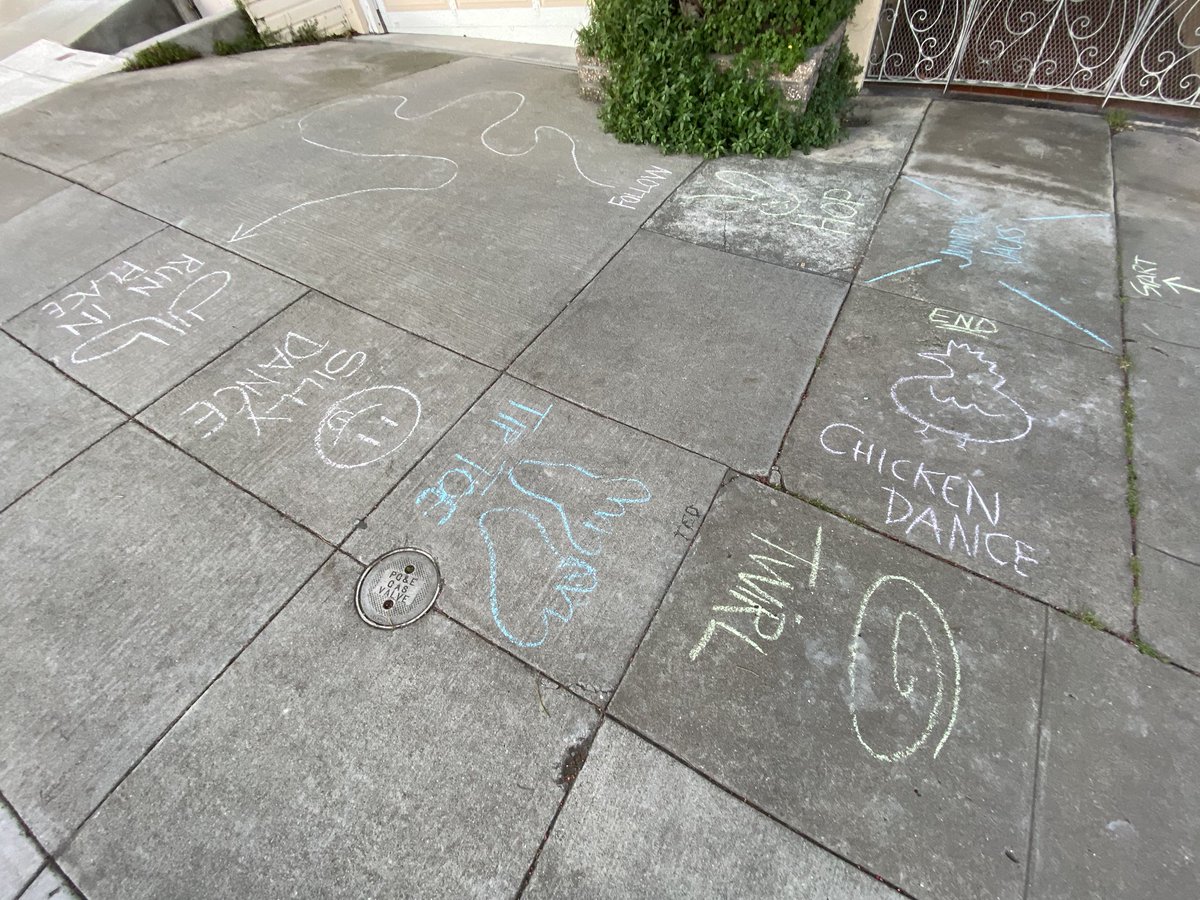 START
JUMPING
JACKS
HOP
FOLLOW
RUN IN
PLACE
SILLY
DANCE
TIP
TOE
PG&E
GAS
VALVE
TWIRL
CHICKEN
DANCE
END